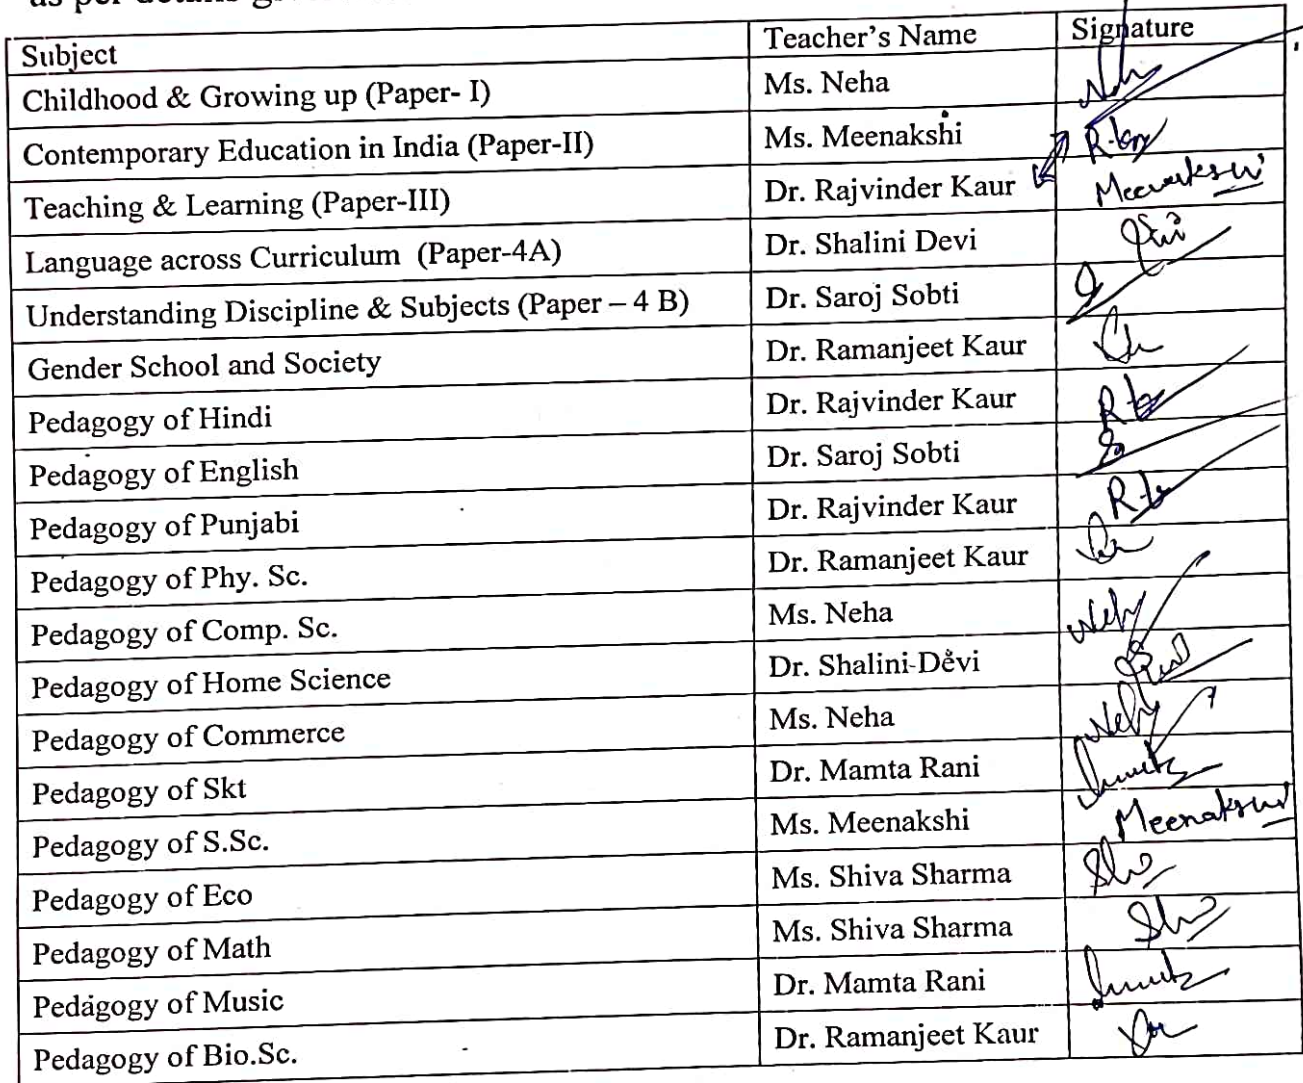 as per details
Subject Teacher's Name Signature
Childhood & Growing up (Paper- I) Ms. Neha
Contemporary Education in India (Paper-II) Ms. Meenakshi R-kaur
Teaching & Learning (Paper-III) Dr. Rajvinder Kaur Meenakshi
Language across Curriculum (Paper-4A) Dr. Shalini Devi
Understanding Discipline & Subjects (Paper – 4 B) Dr. Saroj Sobti
Gender School and Society Dr. Ramanjeet Kaur
Pedagogy of Hindi Dr. Rajvinder Kaur
Pedagogy of English Dr. Saroj Sobti
Pedagogy of Punjabi Dr. Rajvinder Kaur
Pedagogy of Phy. Sc. Dr. Ramanjeet Kaur
Pedagogy of Comp. Sc. Ms. Neha Neha
Pedagogy of Home Science Dr. Shalini-Devi
Pedagogy of Commerce Ms. Neha Neha
Pedagogy of Skt Dr. Mamta Rani
Pedagogy of S.Sc. Ms. Meenakshi Meenakshi
Pedagogy of Eco Ms. Shiva Sharma
Pedagogy of Math Ms. Shiva Sharma
Pedagogy of Music Dr. Mamta Rani
Pedagogy of Bio.Sc. Dr. Ramanjeet Kaur